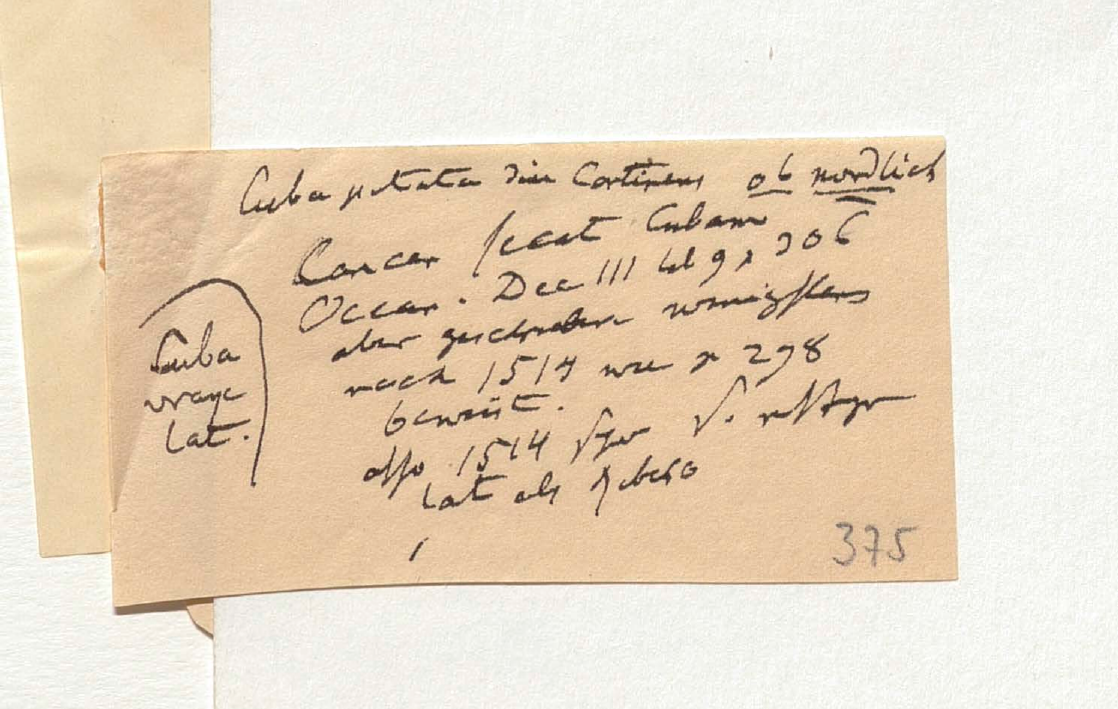 Cuba putata diu Continens ob nordlich
Cancer secat Cubam
Ocean. Dec III lib 9 p 306
aber geschrieben wenigstens
nach 1514 wie p 298
beweist.
also 1514 schon
lat als Ribero
Cuba
vraye
lat.
375